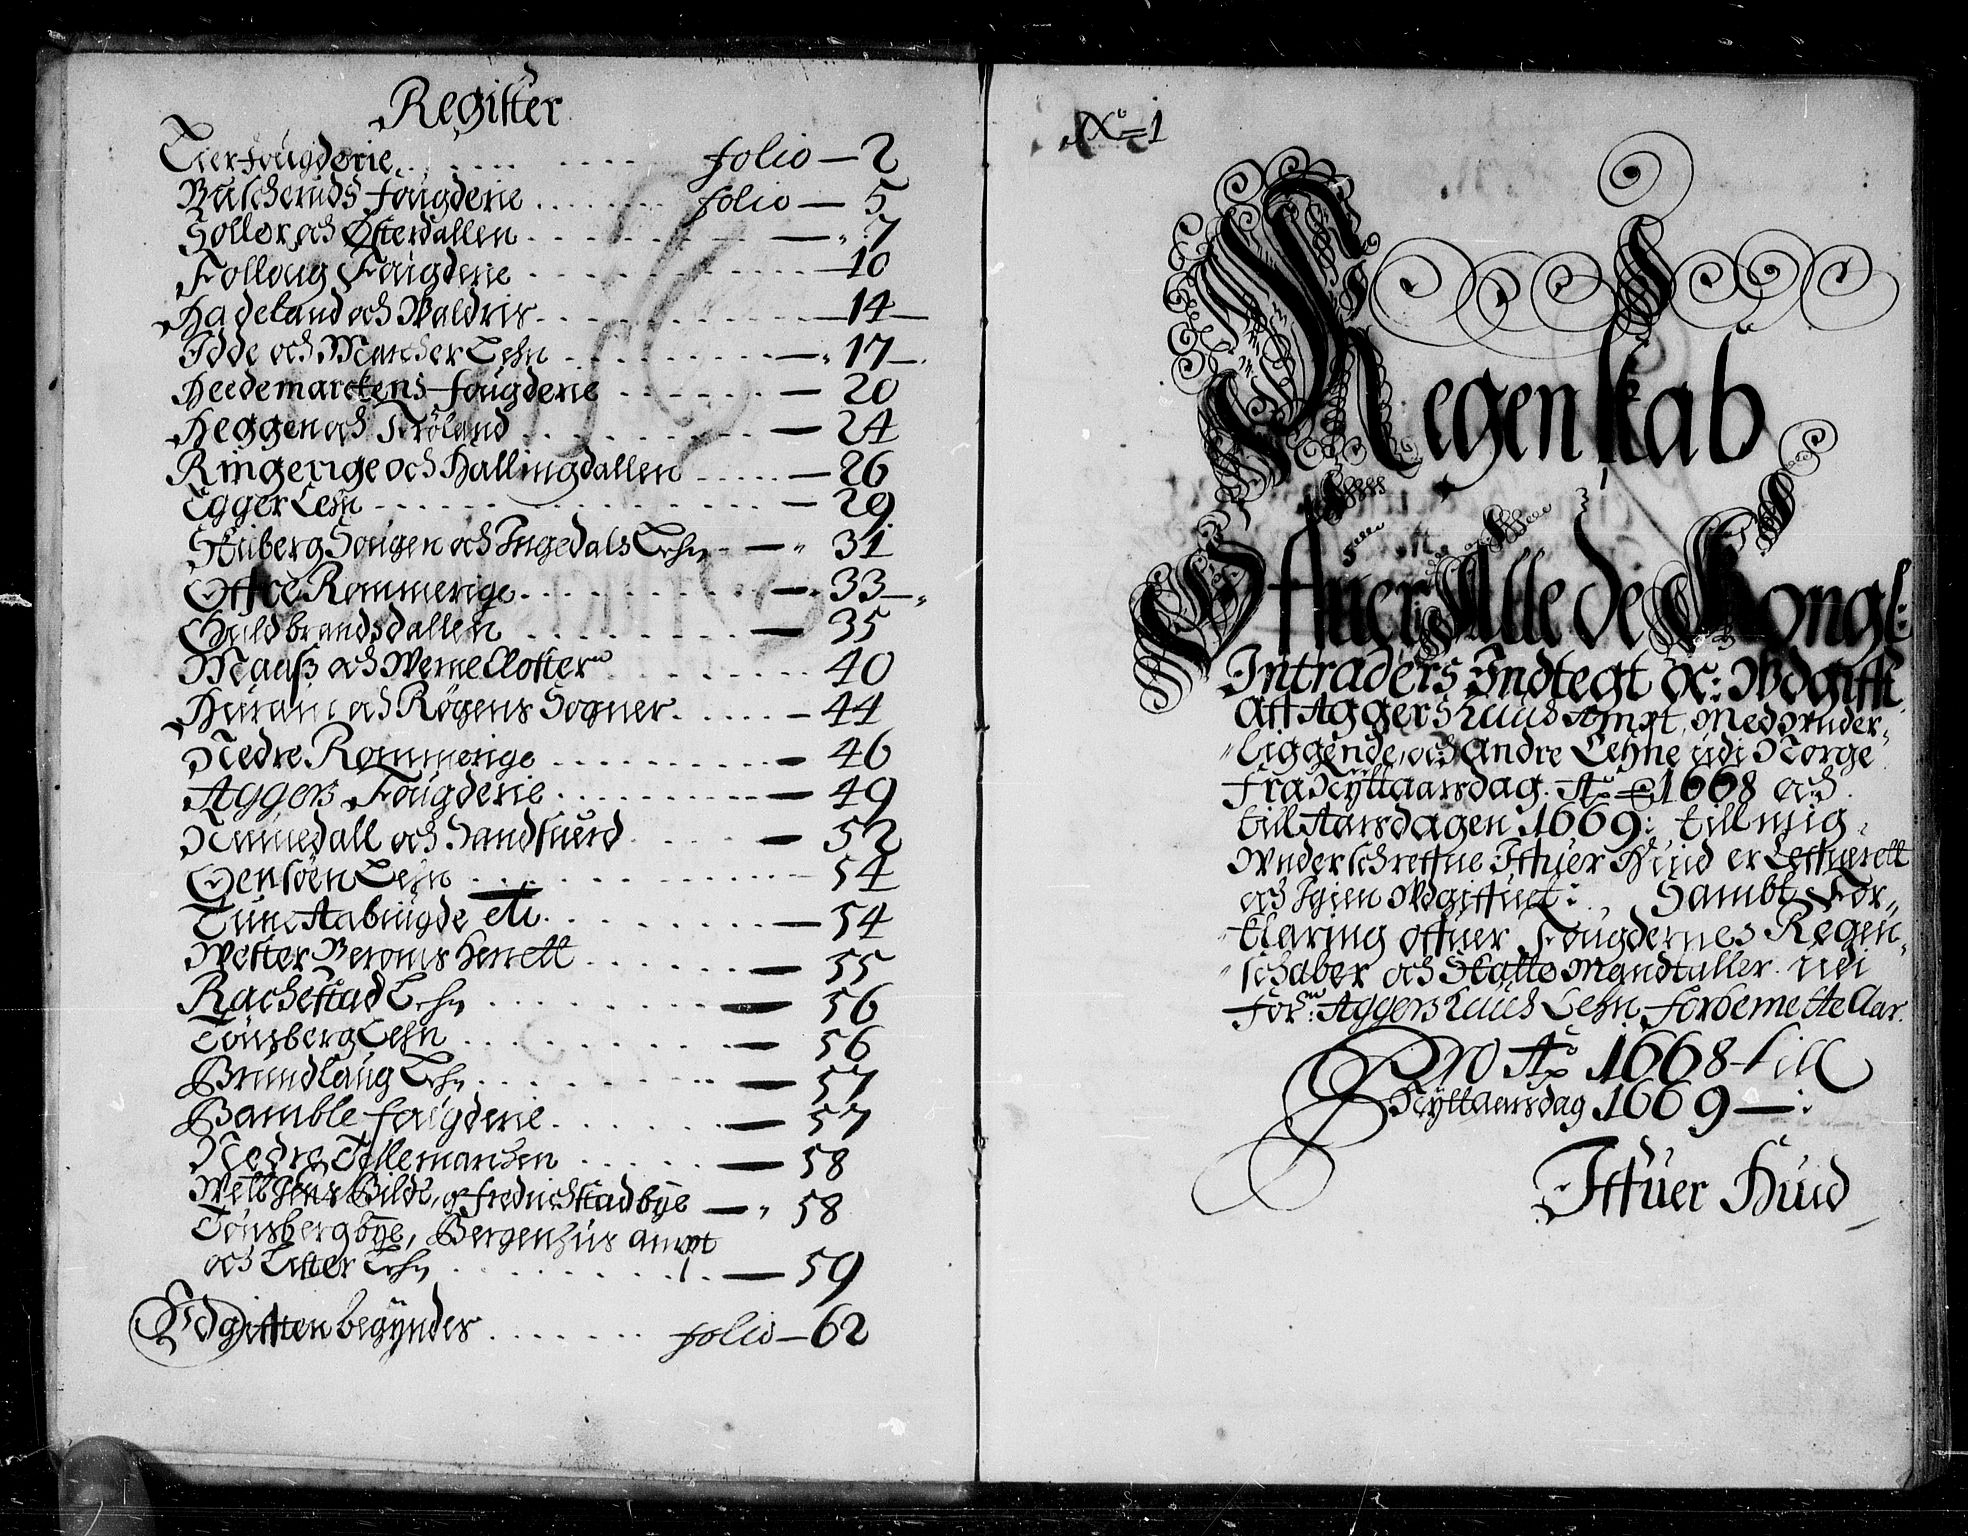 Register
Lier fougderie . . . . . . . . . . folio — 2
Buscheruds fougderie . . . . . . . folio — 5
Solløer och Østerdallen . . . . . . . . — 7
Folloug Fougderie . . . . . . . . . . — 10
Hadeland och Waldris . . . . . . . . . — 14 —
Idde och Marcker Lehn . . . . . . . . — 17 —
Heedemarckens fougderie . . . . . . — 20
Heggen och Frøland . . . . . . . . . — 24
Ringerige och Hallingdallen . . . . . — 26
Egger Lehn . . . . . . . . . . . . — 29
Schiberg Sougen och Ingedals Lehn — 31
Øffre Rommerige . . . . . . . . . . — 33 —
Guldbrandsdallen . . . . . . . . . — 35
Maaß och Werne Closter . . . . . . . . 40
Hurum och Røgens Sogner . . . . . — 44
Nedre Rommerige . . . . . . . . . . — 46
Aggers Fougderie . . . . . . . . . — 49
Numedall och Sandsuerd . . . . . — 52
Jensøen Lehn . . . . . . . . . . . . 54
Tune Aabiugde etc. . . . . . . . . — 54
Wester Herrett . . . . . . — 55
Rachestad Lehn . . . . . . . . — 56
Tønsberg Lehn . . . . . . . . . — 56
Brundlaug Lehn . . . . . . . . — 57
Bamble fougderie . . . . . . . — 57
Nedre Tellemarchen . . . . . — 58
Gilde, og Fredrichstad bye — 58
Tønsberg bye, Bergenhus ampt
och Lister Lehn . . . . . . . . . — 59
Udgifften begyndes . . . . . . . folio — 62
No = 1
Regenskab
Offuer Alle de Kongl:
Intraders Indtegt oc: Wdgifft
Aff Aggershuus Ampt, Med Wnder-
liggende, och Andre Lehne udi Norge
Fra Nyttaarsdag Ao 1668 och
till Aarsdagen 1669: till mig
Wnderschreffne Iffuer Hund er Leffuerett
och Igien Wdgiffuet: Sambt For-
klaring offuer Fougdernes Regen-
schaber och Skatte Mandtaller udi
For:n Aggershuus Lehn forbemeste Aar.
Pro Ao 1668 till
Nyttaarsdag 1669 —:
Iffuer Hund